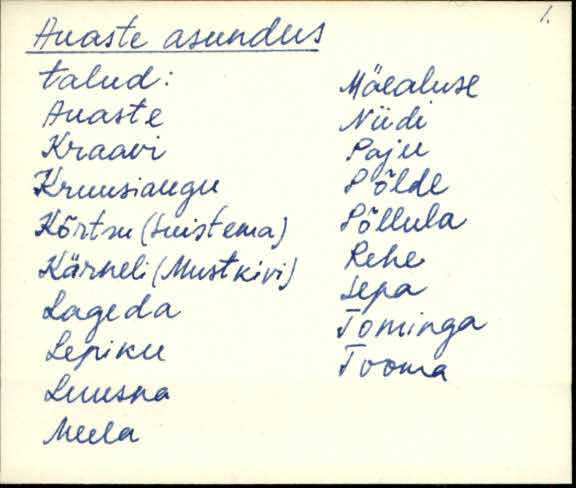 1.
Auaste asundus
talud:
Auaste
Kraavi
Kruusiaugu
Kõrtsu (Luistema)
Kärneli (Mustkivi)
Lageda
Lepiku
Luusna
Meela
Mäealuse
Niidi
Paju
Põlde
Põllula
Rehe
Sepa
Tominga
Tooma